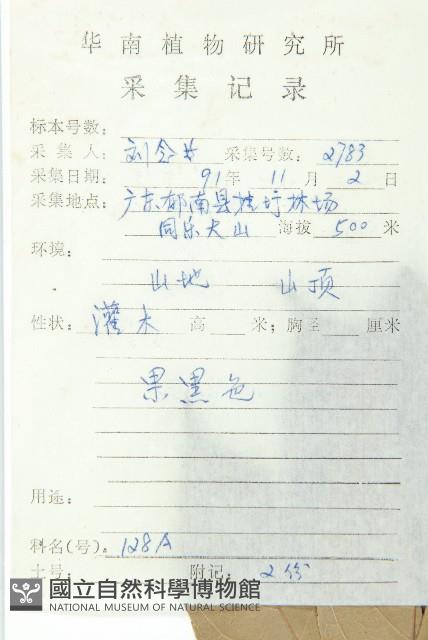 华南植物研究所
采集记录
标本号数:
采集人: 刘念 采集号数: 2783
采集日期: 91年 11月 2日
采集地点: 广东郁南县桂圩林场
同乐大山 海拔 500 米
环境:
山地 山顶
性状: 灌木 高 米; 胸径 厘米
果黑色
用途:
科名(号). 128A
土号: 附记: 2份
國立自然科學博物館
NATIONAL MUSEUM OF NATURAL SCIENCE